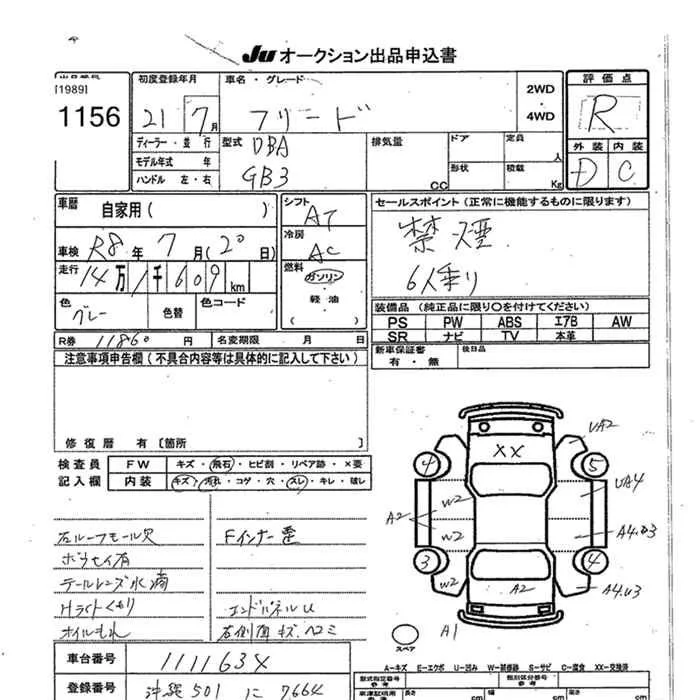 JU オークション出品申込書
出品番号
[1989]
1156
初度登録年月
21 7月
車名・グレード
フリード
2WD
・
4WD
評価点
R
外装 内装
D C
ディーラー・並行
モデル年式 年
ハンドル 左・右
型式
DBA
GB3
排気量
CC
ドア
形状
定員
人
積載
Kg
車歴
自家用( )
車検 R8年7月(20日)
走行
14万1千609km
色
グレー
色替
色コード
シフト
AT
冷房
AC
燃料
ガソリン
・
軽油
( )
セールスポイント(正常に機能するものに限ります)
禁煙
6人乗り
装備品(純正品に限り〇を付けてください)
PS PW ABS エアB AW
SR ナビ TV 本革
新車保証書
有・無
後日品
R券 11860円
名変期限 月 日
注意事項申告欄(不具合内容等は具体的に記入して下さい)
修復歴 有[箇所 ]
検査員
記入欄
FW キズ・飛石・ヒビ割・リペア跡・×要
内装 キズ・汚れ・コゲ・穴・スレ・キレ・破レ
左ルーフモール欠
ボウセイ有
テールレンズ水滴
Hライトくもり
オイルもれ
Fインナー歪
エンドパネルU
右側面キズ、ヘコミ
車台番号 1111634
登録番号 沖縄 501 に 7664
XX
UA2
4
5
W2
UA4
A2
W2
A4.U3
3
4
W2
A2
A4.U3
A1
スペア
A-キズ E-エクボ U-凹み W-補修跡 S-サビ C-腐食 XX-交換済